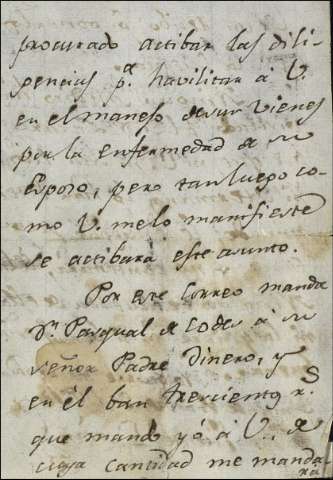 procurado actibar las dili-
gencias p.ª havilitar á V.
en el manejo de sus vienes
por la enfermedad de su
Esposo, pero tan luego co-
mo V. me lo manifieste
se actibará este asunto.
Por este Correo manda
Dn Pasqual de Codes á su
señor Padre Dinero, y
en él ban trescientos r.s
que mando yó á V., de
cuya cantidad me manda-